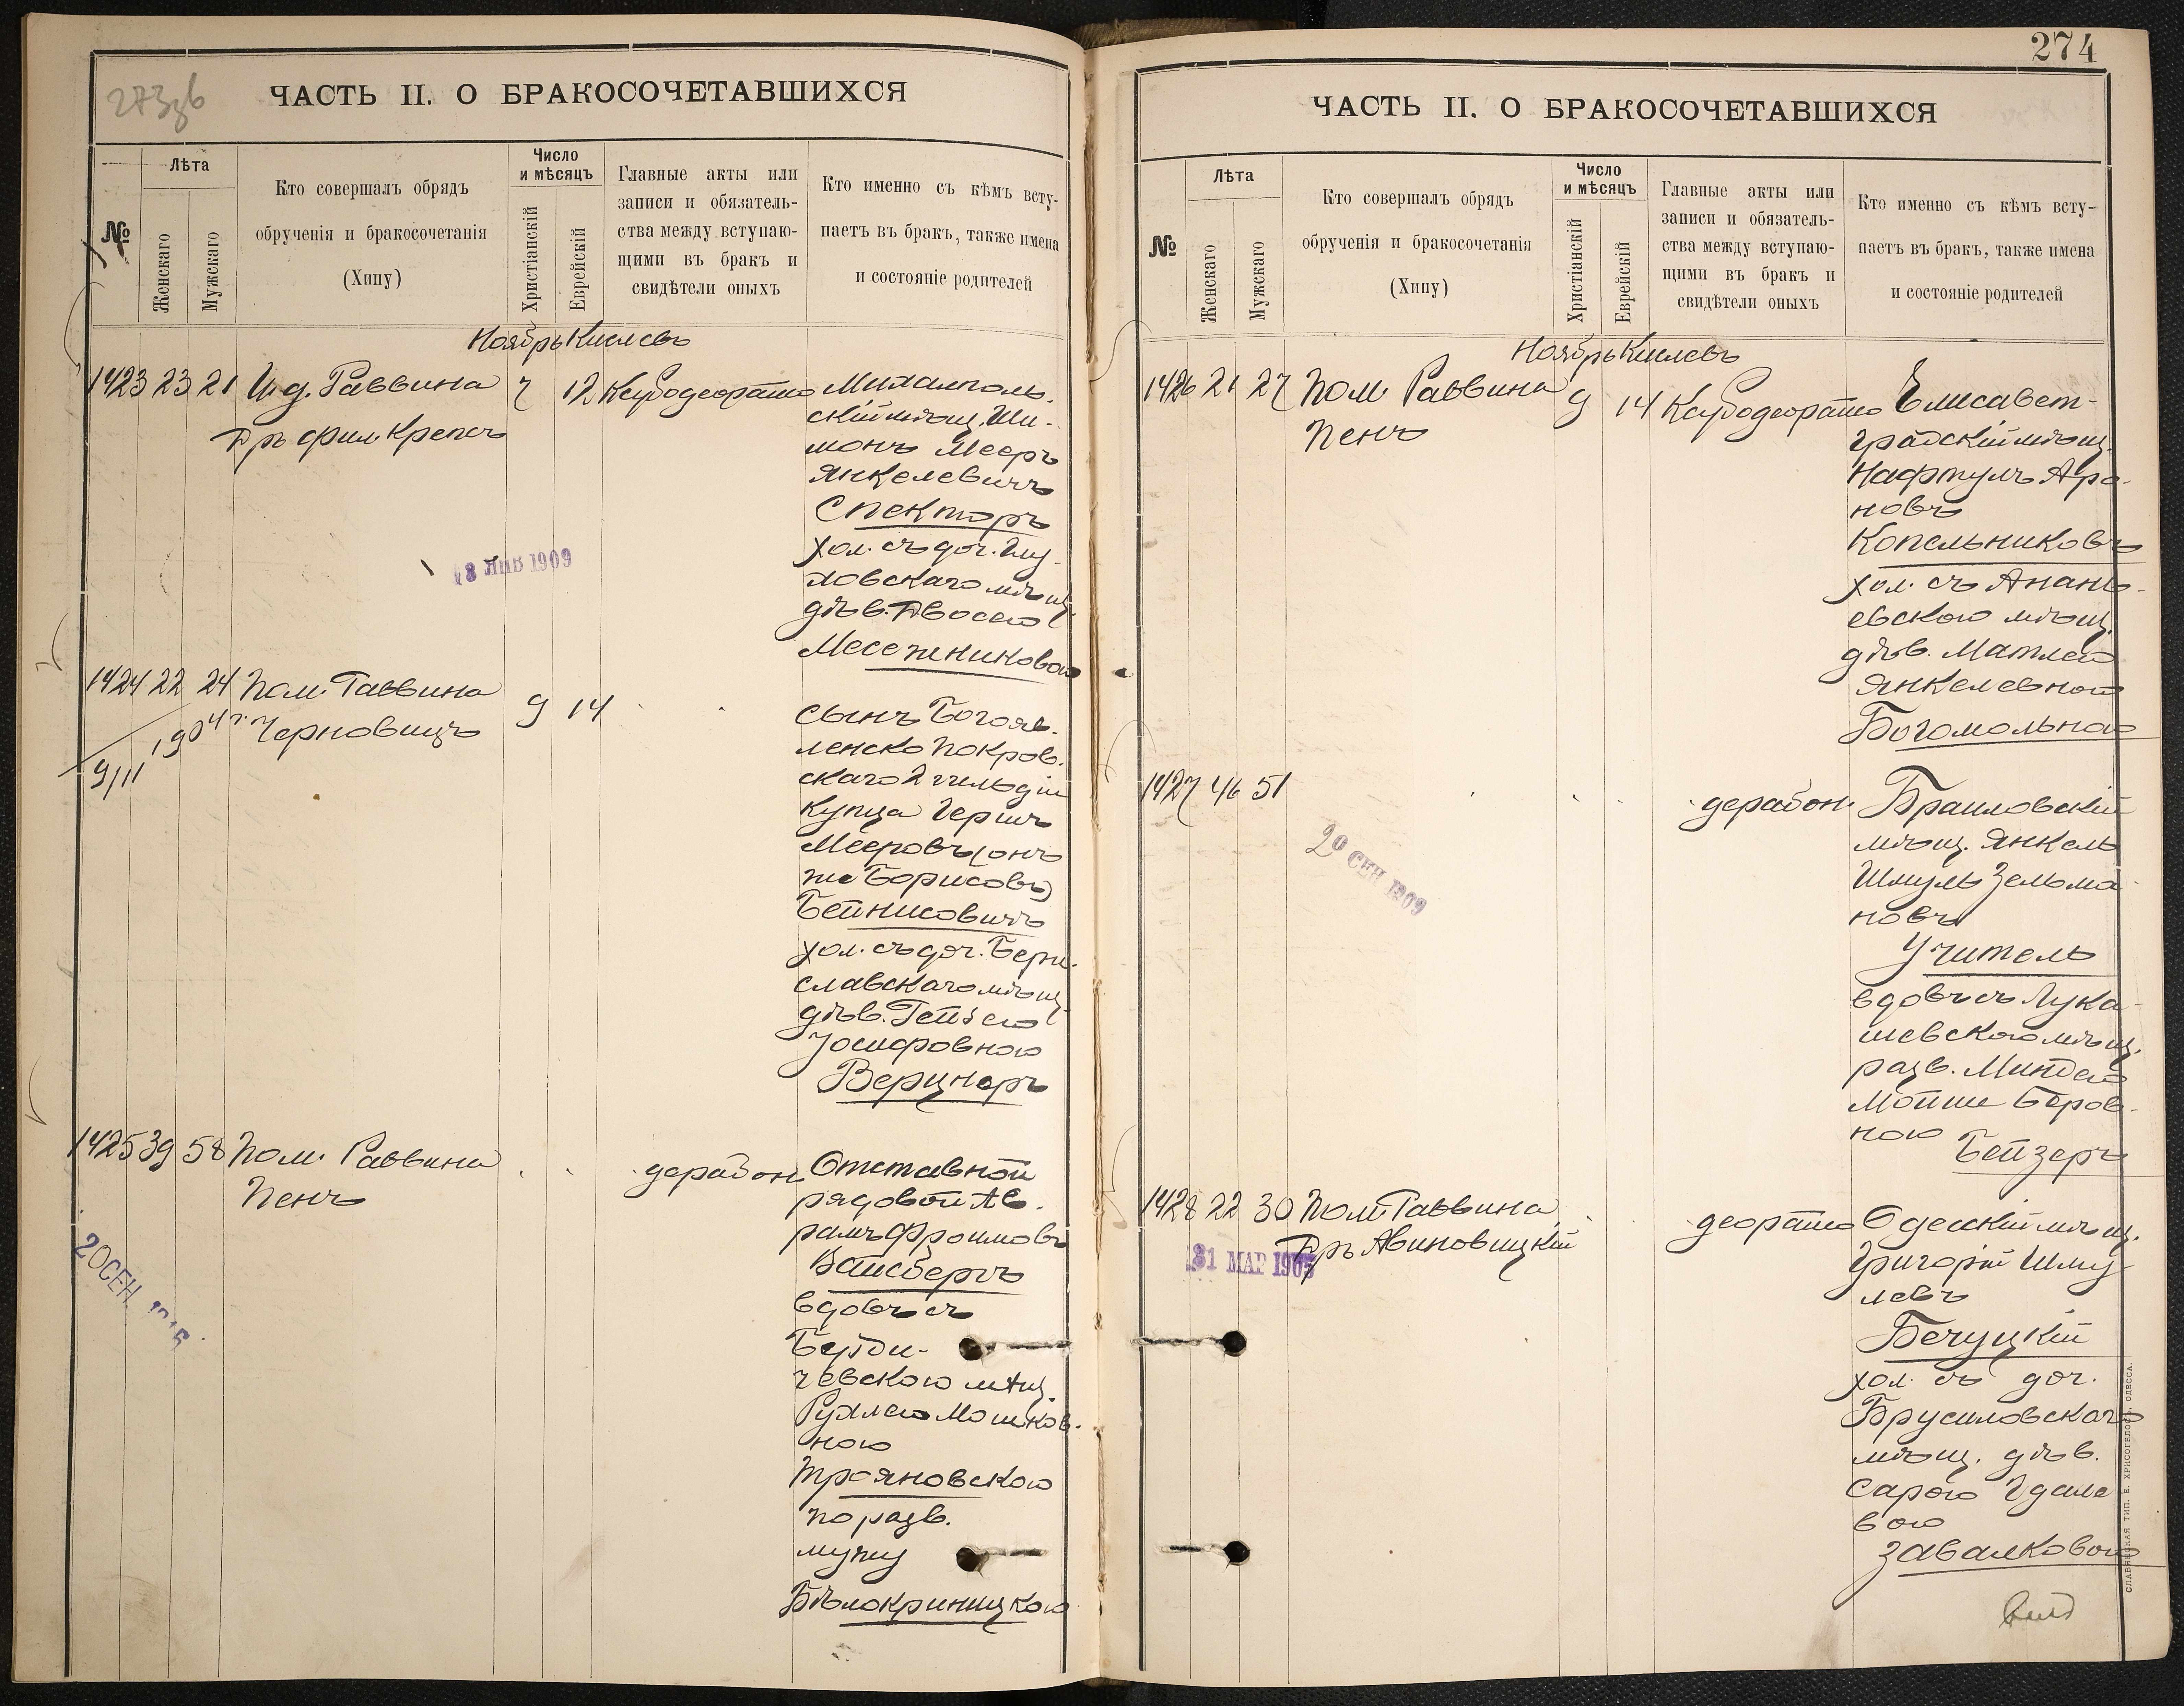 273зв
ЧАСТЬ II. О БРАКОСОЧЕТАВШИХСЯ
№
Лѣта
Женскаго
Мужскаго
Кто совершалъ обрядъ
обрученія и бракосочетанія
(Хипу)
Число
и мѣсяцъ
Христіанскій
Еврейскій
Главные акты или
записи и обязатель-
ства между вступаю-
щими въ бракъ и
свидѣтели оныхъ
Кто именно съ кѣмъ всту-
паетъ въ бракъ, также имена
и состояніе родителей
Ноябрь Кислевъ
1423 23 21 И.д. Раввина 7 12
Д-ръ Фил. Крепсъ
Михалполь-
скій мѣщ. Ши-
монъ Мееръ
Янкелевичъ
Спекторъ
хол. съ доч.
ловскаго мѣщ.
дѣв. Двосею
Месежниковою
ЯНВ 1909
1424 22 24 Пом. Раввина 9 14
Черновицъ
1904 г.
9/11
сынъ Богояв-
ленско Покров-
скаго 2 гильдіи
Купца Герша
Мееровъ (онъ
же Борисовъ)
Бейнисовичъ
хол. съ доч. Бери-
славскаго мѣщ.
дѣв. Гейзею
Іосифовною
Верцнеръ
1425 39 58 Пом. Раввина дерабон.
Пенъ
Отставной
рядовой Ав-
рамъ Фроимовъ
Вайсбергъ
вдовъ съ
Берди-
чевскою мѣщ.
Рухлею Мошков-
ною
Трояновскою
по разв.
мужу
Бѣлокриницкою
20 СЕН.
274
ЧАСТЬ II. О БРАКОСОЧЕТАВШИХСЯ
№
Лѣта
Женскаго
Мужскаго
Кто совершалъ обрядъ
обрученія и бракосочетанія
(Хипу)
Число
и мѣсяцъ
Христіанскій
Еврейскій
Главные акты или
записи и обязатель-
ства между вступаю-
щими въ бракъ и
свидѣтели оныхъ
Кто именно съ кѣмъ всту-
паетъ въ бракъ, также имена
и состояніе родителей
Ноябрь Кислевъ
1426 21 27 Пом. Раввина 9 14
Пенъ
Елисавет-
градскій мѣщ.
Нафтулъ Аро-
новъ
Копельниковъ
хол. съ Анань-
евскою мѣщ.
дѣв. Матлею
Янкелевною
Богомольною
1427 46 51 дерабон.
Браиловскій
мѣщ. Янкель
Шмуль Зельма-
новъ
Учитель
вдовъ съ Лука-
шевскою мѣщ.
разв. Миндею
Мойше Беров-
ною
Бейзеръ
20 СЕН 1909
1428 22 30 Пом. Раввина деорайто
Д-ръ Авиновицкій
31 МАР 1905
Одесскій мѣщ.
Григорій Шму-
левъ
Бечуцкій
хол. съ доч.
Брусиловскаго
мѣщ. дѣв.
Сарою Гдале
вою
Завалковою
СЛАВЯНСКАЯ ТИП. Е. ХРИСОГЕЛОСЪ, ОДЕССА.